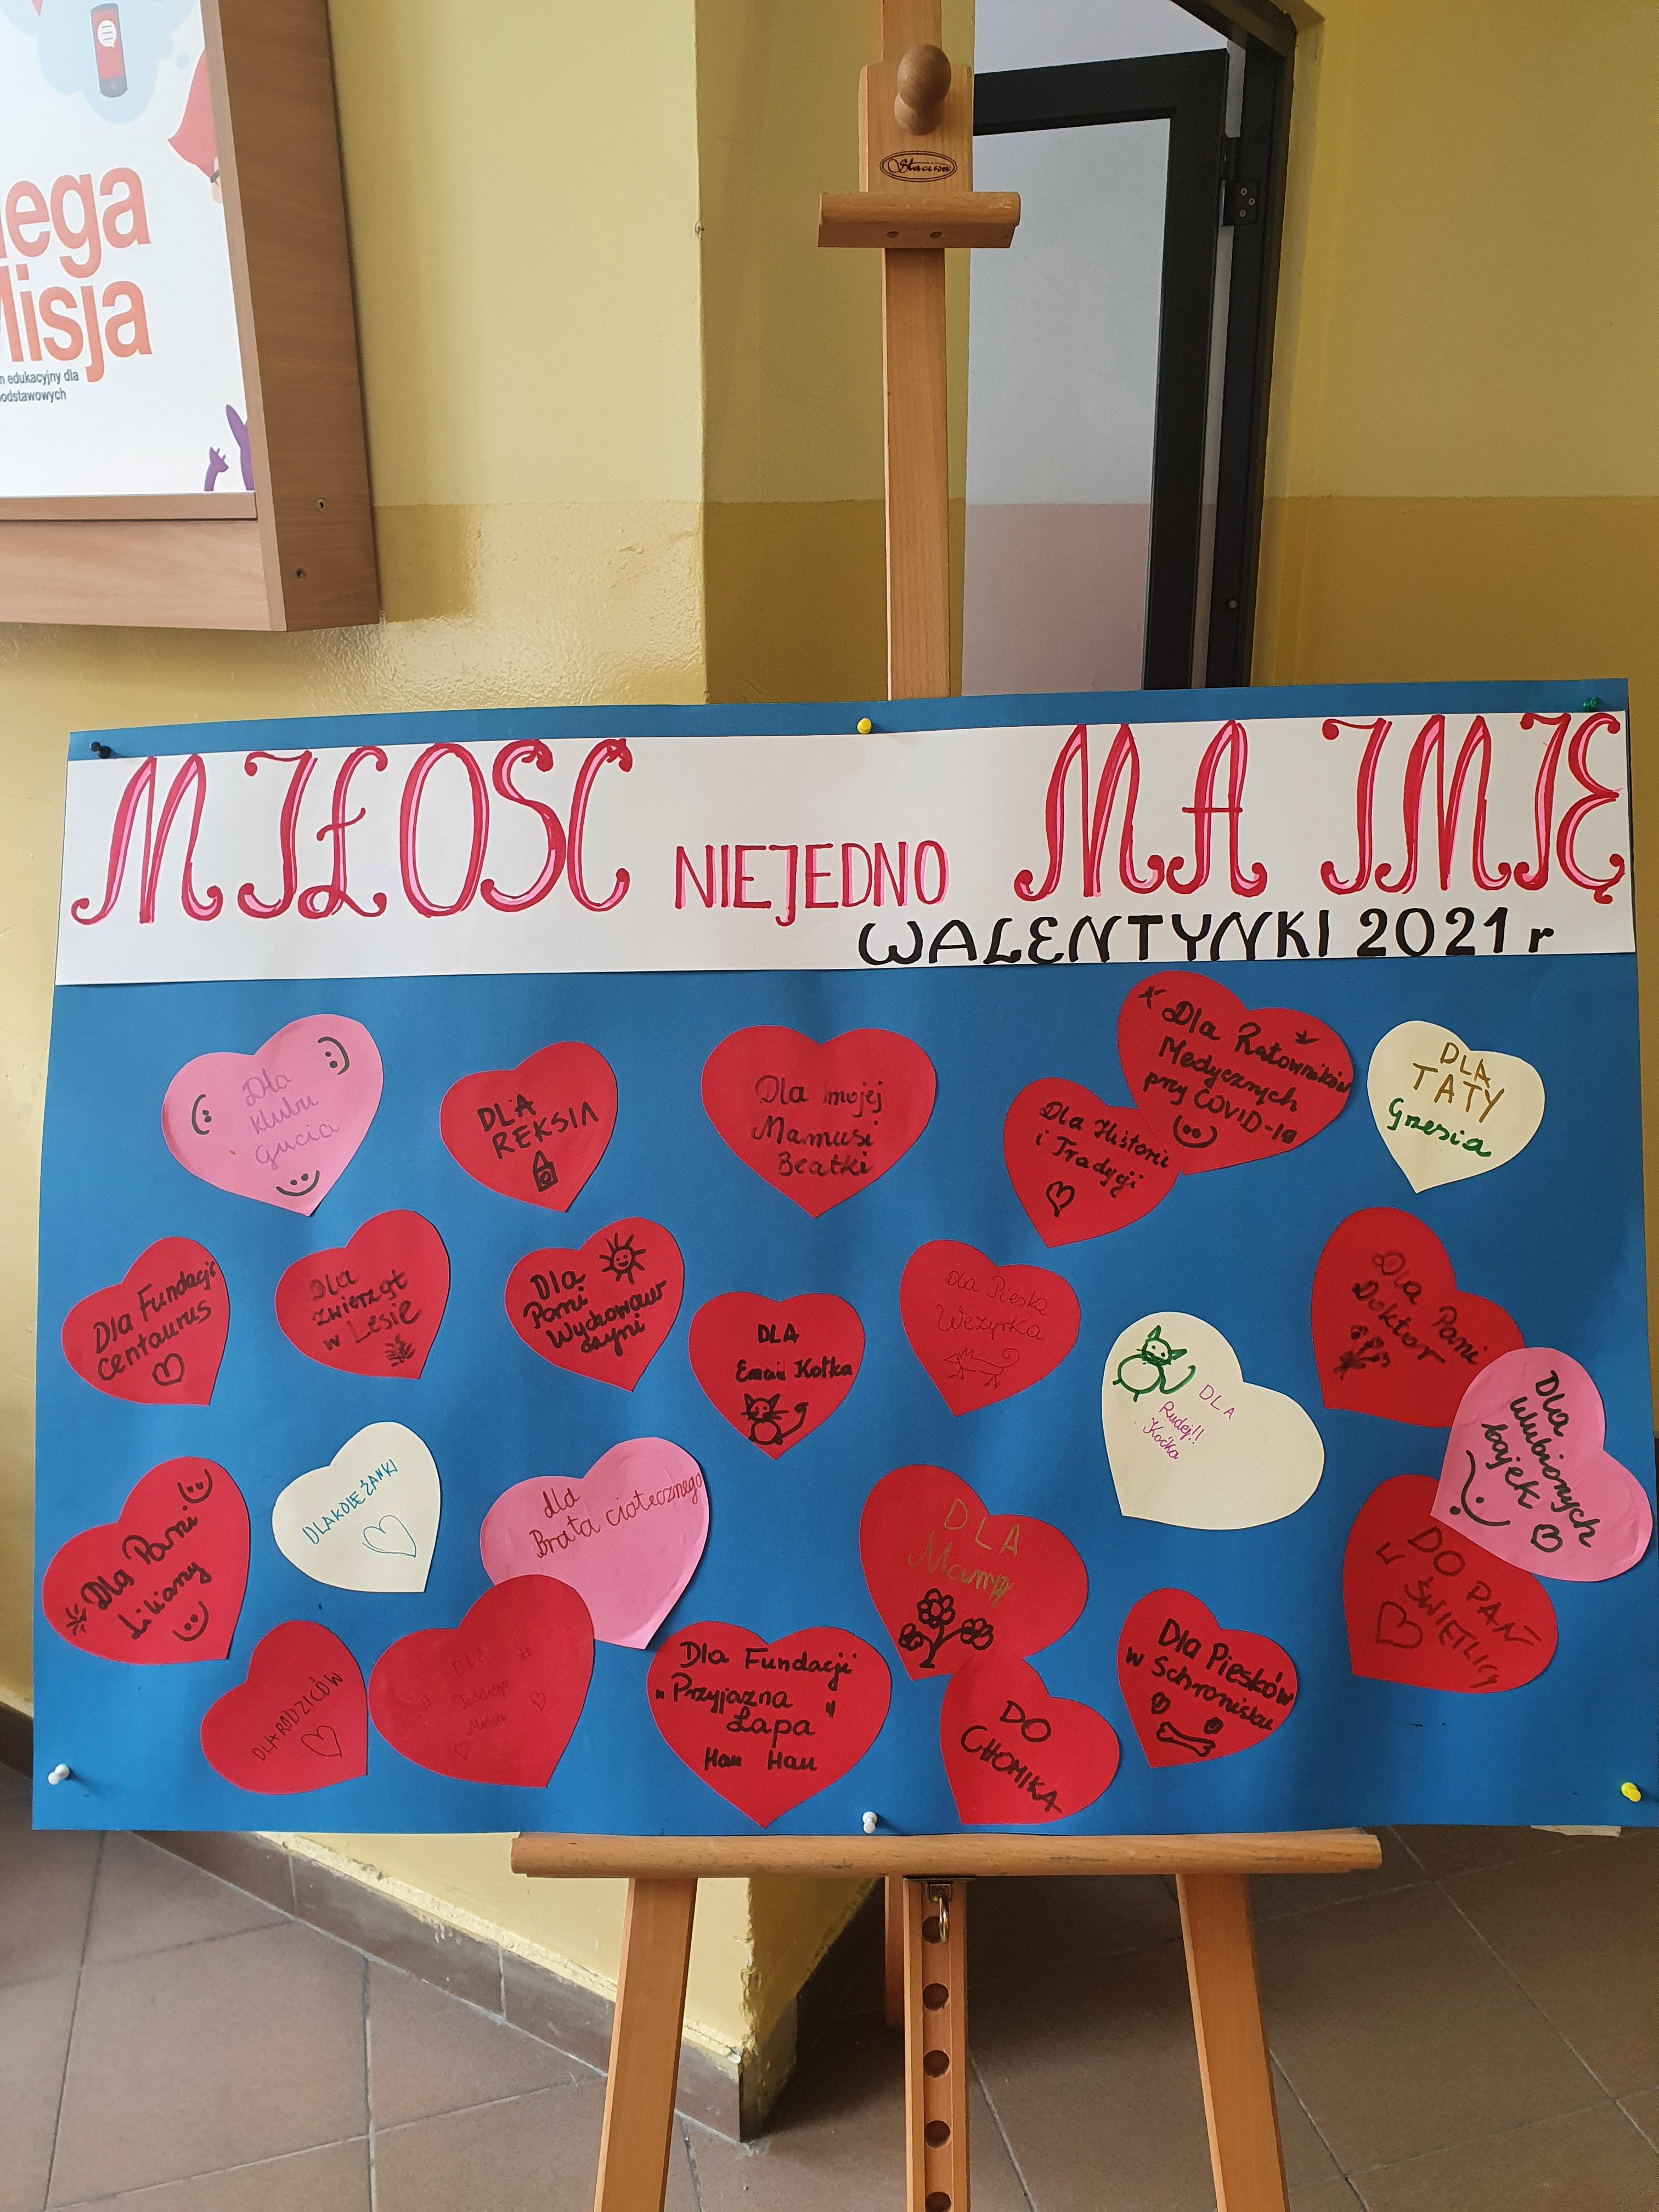 ega
Misja
edukacyjny dla
podstawowych
MIŁOSC NIEJEDNO MA IMIĘ
WALENTYNKI 2021 r
Dla
klubu
Gucia
DLA
REKSIA
Dla mojej
Mamusi
Beatki
Dla Historii
i Tradycji
Dla Ratowników
Medycznych
przy COVID-19
DLA
TATY
Grzesia
Dla Fundacji
Centaurus
Dla
zwierząt
w Lesie
Dla
Pani
Wychowaw
czyni
DLA
Kotka
Dla Pieska
Wezyrka
DLA
Rudej!!
Koćka
Dla Pani
Doktor
Dla
ulubionych
bajek
Dla Pani
Liliany
DLA KOLEŻANKI
dla
Brata ciotecznego
DLA
Mamy
DO PAŃ
ŚWIETLICY
DLA RODZICÓW
DLA
Dla Fundacji
"Przyjazna
Łapa"
Hau Hau
DO
CHOMIKA
Dla Piesków
w Schronisku